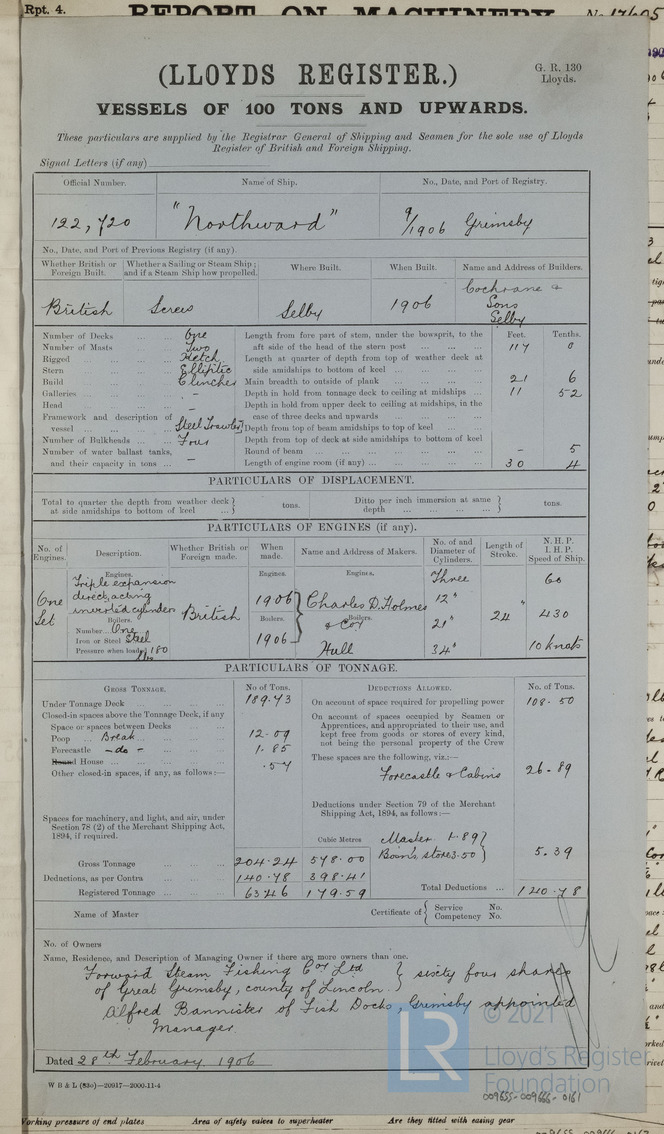 Rpt. 4.
REPORT ON MACHINERY
No 17605
(LLOYDS REGISTER.)
G. R. 130
Lloyds.
VESSELS OF 100 TONS AND UPWARDS.
These particulars are supplied by the Registrar General of Shipping and Seamen for the sole use of Lloyds
Register of British and Foreign Shipping.
Signal Letters (if any)
Official Number. Name of Ship. No., Date, and Port of Registry.
122,720 "Northward" 9/1906 Grimsby
No., Date, and Port of Previous Registry (if any).
Whether British or Foreign Built. Whether a Sailing or Steam Ship; and if a Steam Ship how propelled. Where Built. When Built. Name and Address of Builders.
British Screw Selby 1906 Cochrane & Sons Selby
Number of Decks One
Number of Masts Two
Rigged Ketch
Stern Elliptic
Build Clincher
Galleries -
Head -
Framework and description of vessel Steel Trawler
Number of Bulkheads Four
Number of water ballast tanks, and their capacity in tons -
Feet. Tenths.
Length from fore part of stem, under the bowsprit, to the aft side of the head of the stern post 117 0
Length at quarter of depth from top of weather deck at side amidships to bottom of keel
Main breadth to outside of plank 21 6
Depth in hold from tonnage deck to ceiling at midships 11 52
Depth in hold from upper deck to ceiling at midships, in the case of three decks and upwards
Depth from top of beam amidships to top of keel
Depth from top of deck at side amidships to bottom of keel
Round of beam - 5
Length of engine room (if any) 30 4
PARTICULARS OF DISPLACEMENT.
Total to quarter the depth from weather deck at side amidships to bottom of keel } tons. Ditto per inch immersion at same depth } tons.
PARTICULARS OF ENGINES (if any).
No. of Engines. Description. Whether British or Foreign made. When made. Name and Address of Makers. No. of and Diameter of Cylinders. Length of Stroke. N. H. P. I. H. P. Speed of Ship.
One Set
Engines.
Triple expansion
direct acting
inverted cylinders
Boilers.
Number One
Iron or Steel Steel
Pressure when loaded 180 lbs
British
Engines.
1906
Boilers.
1906
Engines.
Charles D. Holmes
Boilers.
& Coy
Hull
Three
12"
21"
34"
24"
60
430
10 knots
PARTICULARS OF TONNAGE.
GROSS TONNAGE. No of Tons.
Under Tonnage Deck 189.73
Closed-in spaces above the Tonnage Deck, if any
Space or spaces between Decks
Poop Break 12.09
Forecastle - do - 1.85
Round House .57
Other closed-in spaces, if any, as follows:—
Spaces for machinery, and light, and air, under Section 78 (2) of the Merchant Shipping Act, 1894, if required.
Cubic Metres
Gross Tonnage 204.24 578.00
Deductions, as per Contra 140.78 398.41
Registered Tonnage 63.46 179.59
DEDUCTIONS ALLOWED. No. of Tons.
On account of space required for propelling power 108.50
On account of spaces occupied by Seamen or Apprentices, and appropriated to their use, and kept free from goods or stores of every kind, not being the personal property of the Crew
These spaces are the following, viz.:—
Forecastle & Cabins 26.89
Deductions under Section 79 of the Merchant Shipping Act, 1894, as follows:—
Master 1.89
Bosn's store 3.50 } 5.39
Total Deductions 140.78
Name of Master Certificate of { Service No. Competency No.
No. of Owners
Name, Residence, and Description of Managing Owner if there are more owners than one.
Forward Steam Fishing Coy Ltd } sixty four shares
of Great Grimsby, county of Lincoln
Alfred Bannister of Fish Docks, Grimsby appointed
Manager
Dated 28th February 1906
W B & L (83c)—20917—2000-11-4
© 2021
LR
Lloyd's Register
Foundation
009655-009666-0161
Working pressure of end plates Area of safety valves to superheater Are they fitted with easing gear